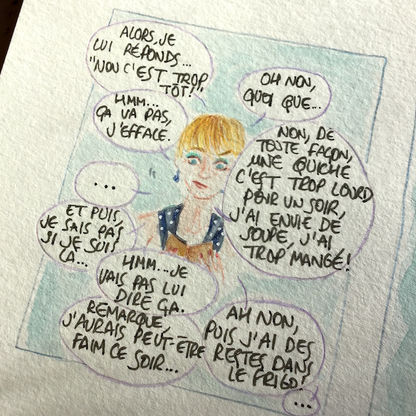 ALORS, JE
LUI RÉPONDS...
"NON C'EST TROP
TÔT!"
OH NON,
QUOI QUE...
HMM...
ÇA VA PAS,
J'EFFACE.
NON, DE
TOUTE FAÇON,
UNE QUICHE
C'EST TROP LOURD
POUR UN SOIR,
J'AI ENVIE DE
SOUPE, J'AI
TROP MANGÉ!
...
ET PUIS,
JE SAIS PAS
SI JE SUIS
LÀ...
HMM... JE
VAIS PAS LUI
DIRE ÇA.
REMARQUE,
J'AURAIS PEUT-ETRE
FAIM CE SOIR...
AH NON,
PUIS J'AI DES
RESTES DANS
LE FRIGO!
...